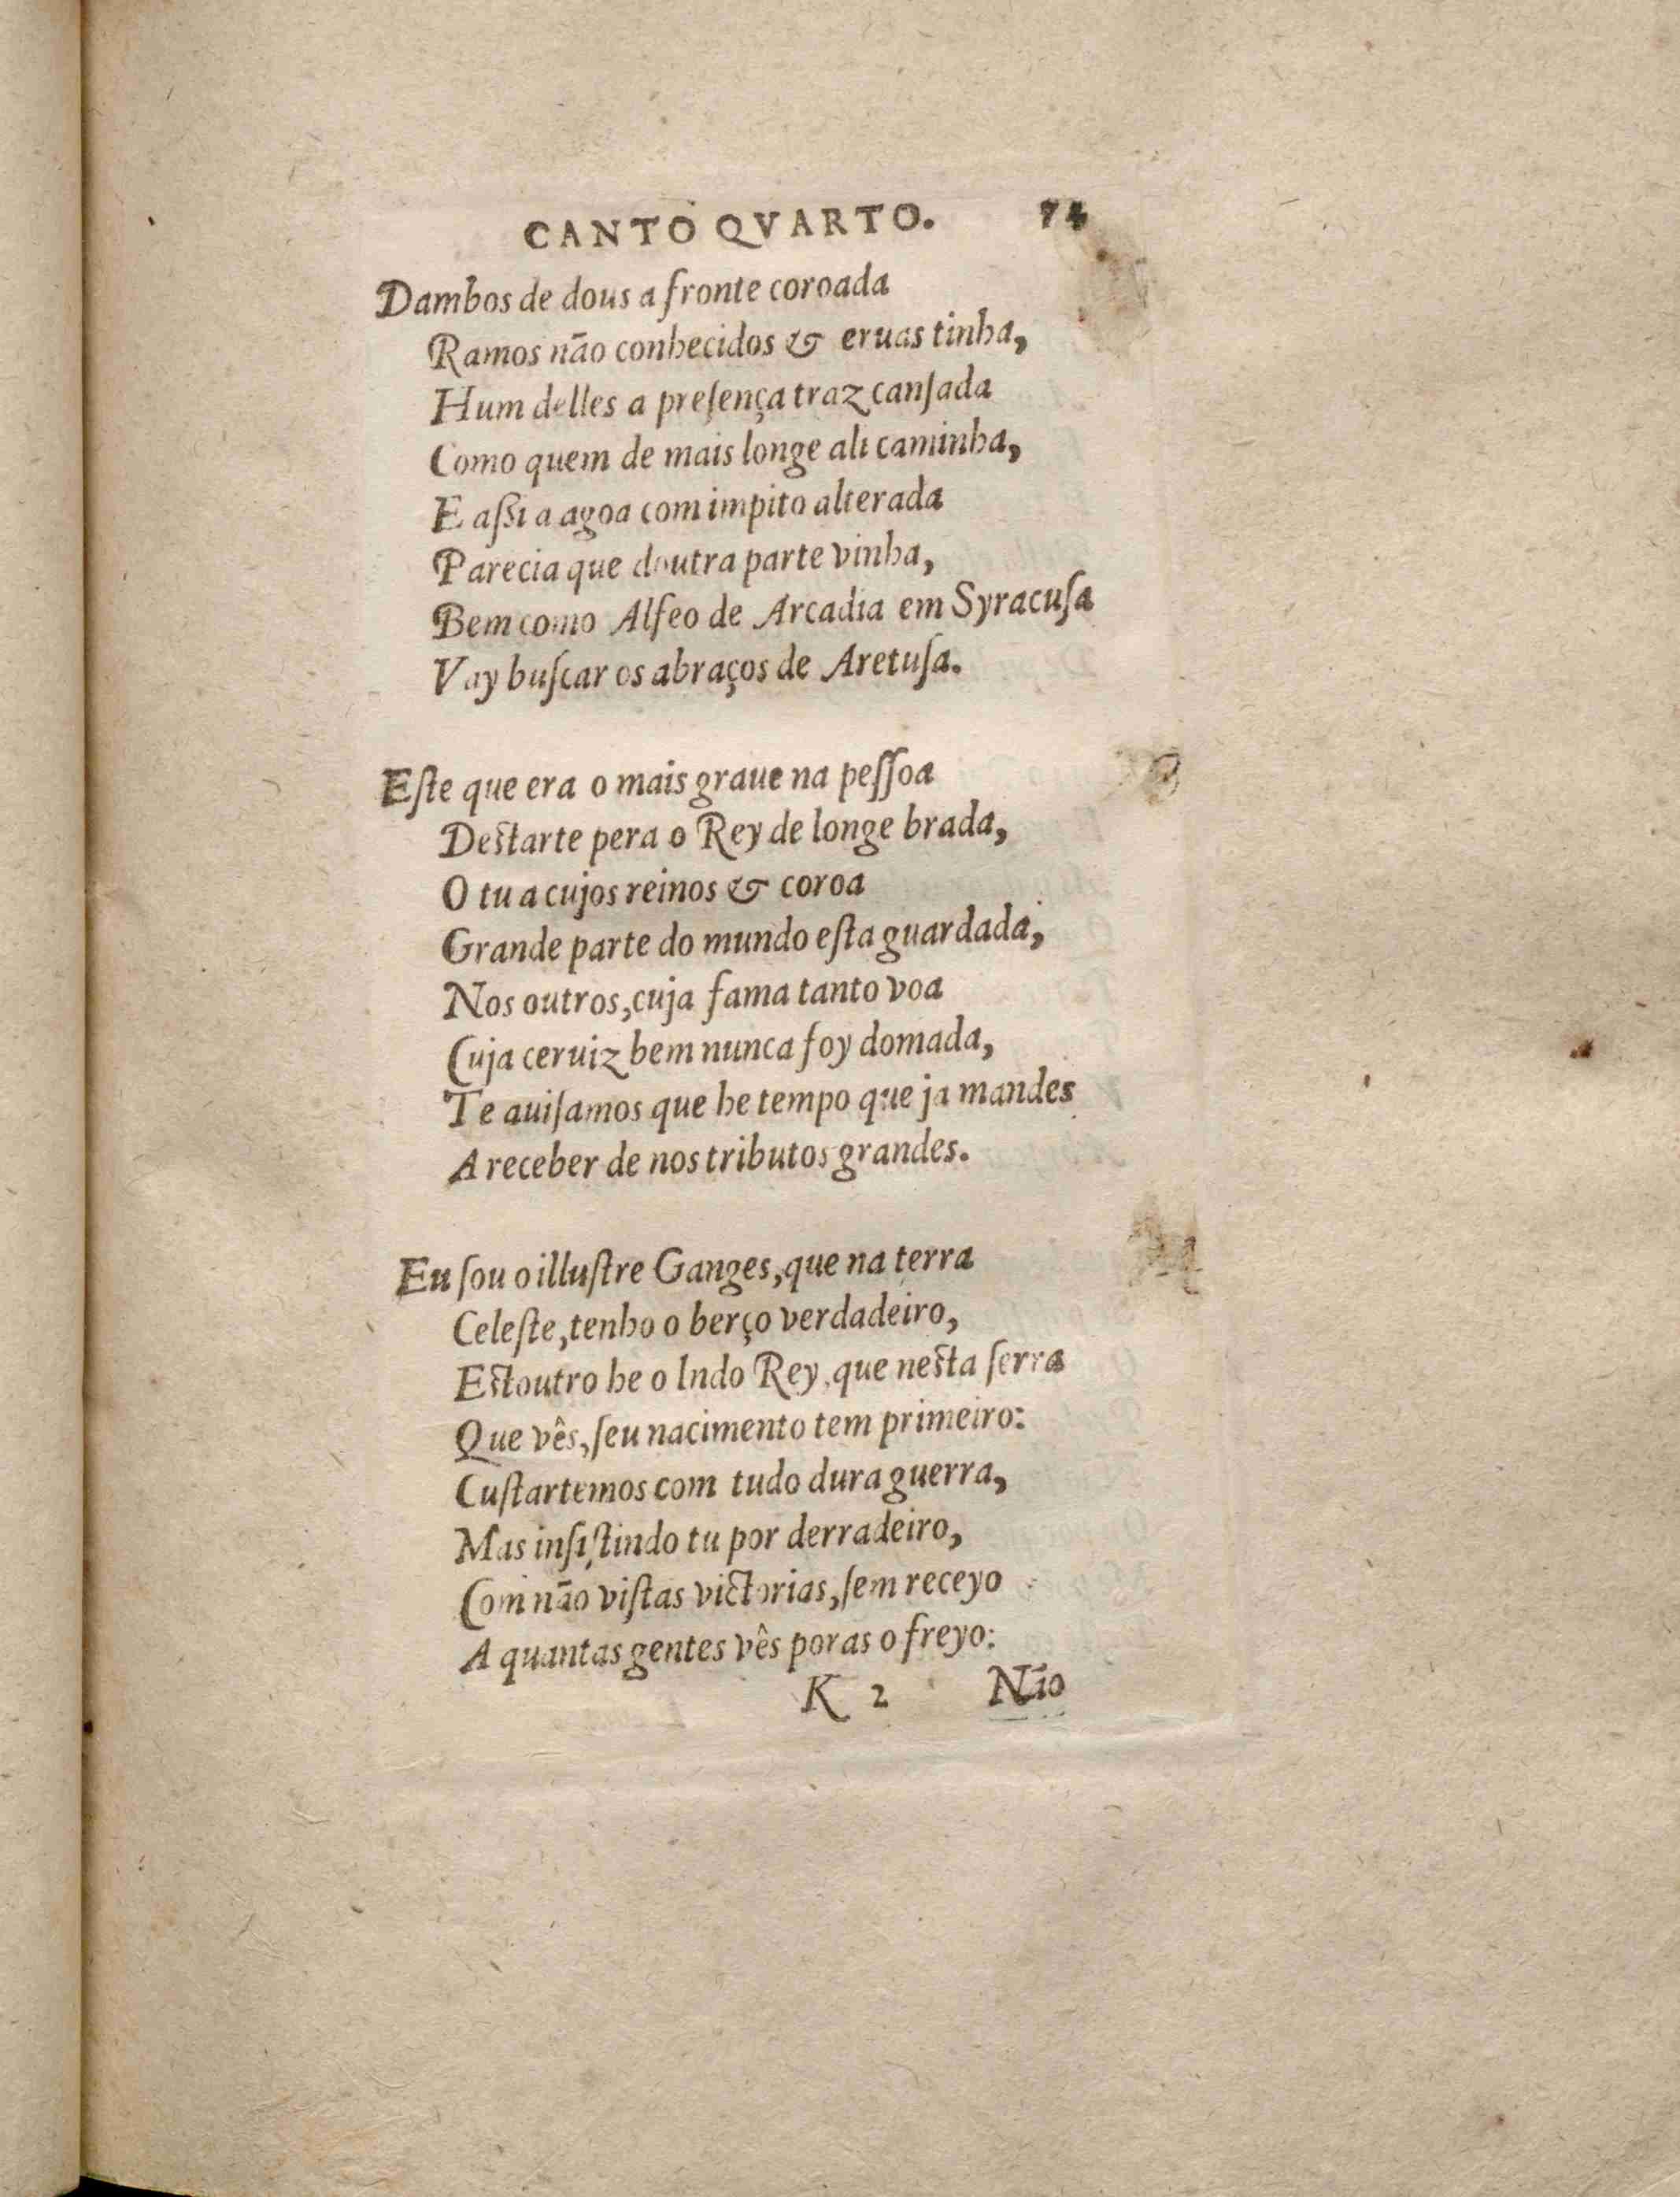 CANTO QVARTO. 74
Dambos de dous a fronte coroada
Ramos não conhecidos & eruas tinha,
Hum delles a preſença traz canſada
Como quem de mais longe ali caminha,
E aſsi a agoa com impito alterada
Parecia que doutra parte vinha,
Bem como Alfeo de Arcadia em Syracuſa
Vay buſcar os abraços de Aretuſa.
Eſte que era o mais graue na peſſoa
Deſtarte pera o Rey de longe brada,
O tu a cujos reinos & coroa
Grande parte do mundo eſta guardada,
Nos outros, cuja fama tanto voa
Cuja ceruiz bem nunca foy domada,
Te auiſamos que he tempo que ja mandes
A receber de nos tributos grandes.
Eu ſou o illuſtre Ganges, que na terra
Celeſte, tenho o berço verdadeiro,
Eſtoutro he o Indo Rey, que neſta ſerra
Que vês, ſeu nacimento tem primeiro:
Cuſtartemos com tudo dura guerra,
Mas inſiſtindo tu por derradeiro,
Com não viſtas victorias, ſem receyo
A quantas gentes vês poras o freyo:
K 2 Não